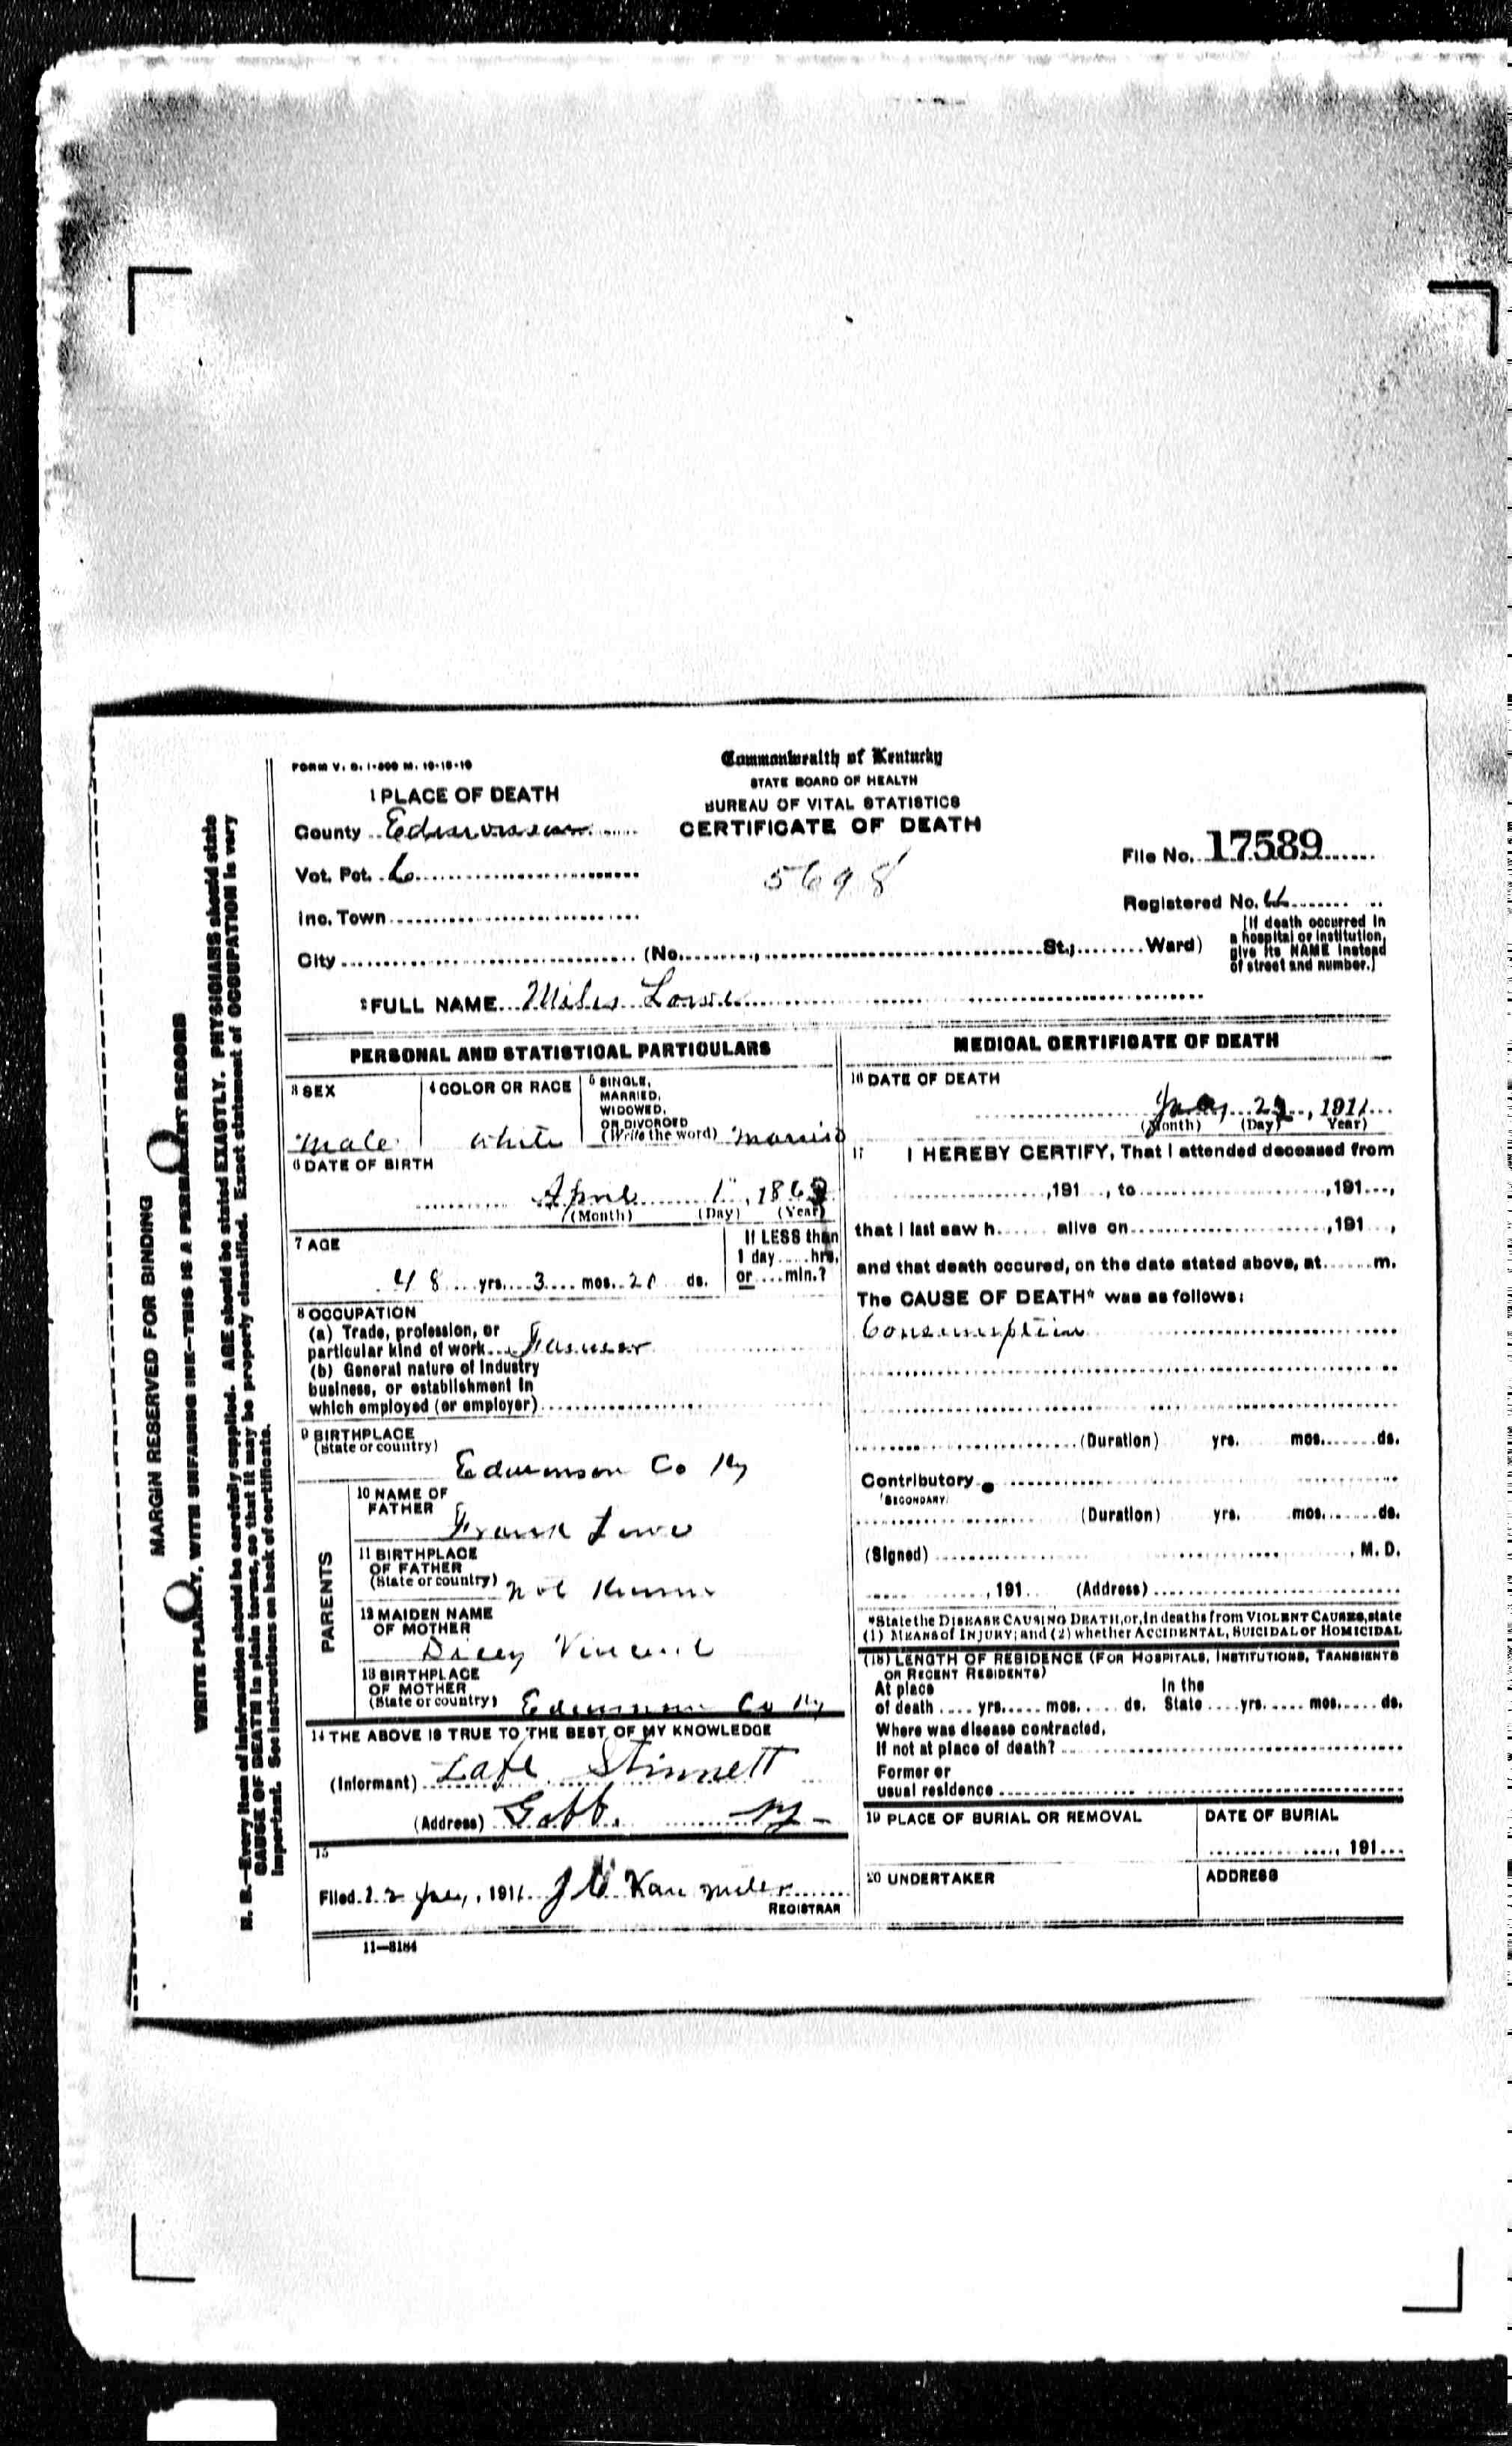 FORM V. S. 1-500 M. 10-18-10
Commonwealth of Kentucky
STATE BOARD OF HEALTH
BUREAU OF VITAL STATISTICS
CERTIFICATE OF DEATH
1 PLACE OF DEATH
County Edmonson
Vot. Pct. 6
Inc. Town
City (No. St.; Ward)
5698
File No. 17589
Registered No.
[If death occurred in
a hospital or institution,
give its NAME instead
of street and number.]
2 FULL NAME Miles Lowe
PERSONAL AND STATISTICAL PARTICULARS
3 SEX
Male
4 COLOR OR RACE
White
5 SINGLE,
MARRIED,
WIDOWED,
OR DIVORCED
(Write the word) Married
6 DATE OF BIRTH
April 1, 1863
(Month) (Day) (Year)
7 AGE
48 yrs. 3 mos. 20 ds.
If LESS than
1 day hrs.
or min.?
8 OCCUPATION
(a) Trade, profession, or
particular kind of work Farmer
(b) General nature of Industry
business, or establishment in
which employed (or employer)
9 BIRTHPLACE
(State or country)
Edmonson Co Ky
PARENTS
10 NAME OF
FATHER
Frank Lowe
11 BIRTHPLACE
OF FATHER
(State or country) Not Known
12 MAIDEN NAME
OF MOTHER
Dicey Vincent
13 BIRTHPLACE
OF MOTHER
(State or country) Edmonson Co Ky
14 THE ABOVE IS TRUE TO THE BEST OF MY KNOWLEDGE
(Informant) Lafe Stinnett
(Address) Ky
15
Filed 22 July, 1911 J
REGISTRAR
11—8184
MEDICAL CERTIFICATE OF DEATH
16 DATE OF DEATH
July 21, 1911
(Month) (Day) Year)
17 I HEREBY CERTIFY, That I attended deceased from
, 191 , to , 191 ,
that I last saw h alive on , 191 ,
and that death occured, on the date stated above, at m.
The CAUSE OF DEATH* was as follows:
Consumption
(Duration) yrs. mos. ds.
Contributory
SECONDARY
(Duration) yrs. mos. ds.
(Signed) , M. D.
, 191 (Address)
*State the DISEASE CAUSING DEATH, or, in deaths from VIOLENT CAUSES, state
(1) MEANS of INJURY; and (2) whether ACCIDENTAL, SUICIDAL or HOMICIDAL
(18) LENGTH OF RESIDENCE (FOR HOSPITALS, INSTITUTIONS, TRANSIENTS
OR RECENT RESIDENTS)
At place In the
of death yrs. mos. ds. State yrs. mos. ds.
Where was disease contracted,
If not at place of death?
Former or
usual residence
19 PLACE OF BURIAL OR REMOVAL
DATE OF BURIAL
, 191
20 UNDERTAKER
ADDRESS
MARGIN RESERVED FOR BINDING
WRITE PLAINLY, WITH UNFADING INK—THIS IS A PERMANENT RECORD
N. B.—Every item of information should be carefully supplied. AGE should be stated EXACTLY. PHYSICIANS should state
CAUSE OF DEATH in plain terms, so that it may be properly classified. Exact statement of OCCUPATION is very
important. See instructions on back of certificate.